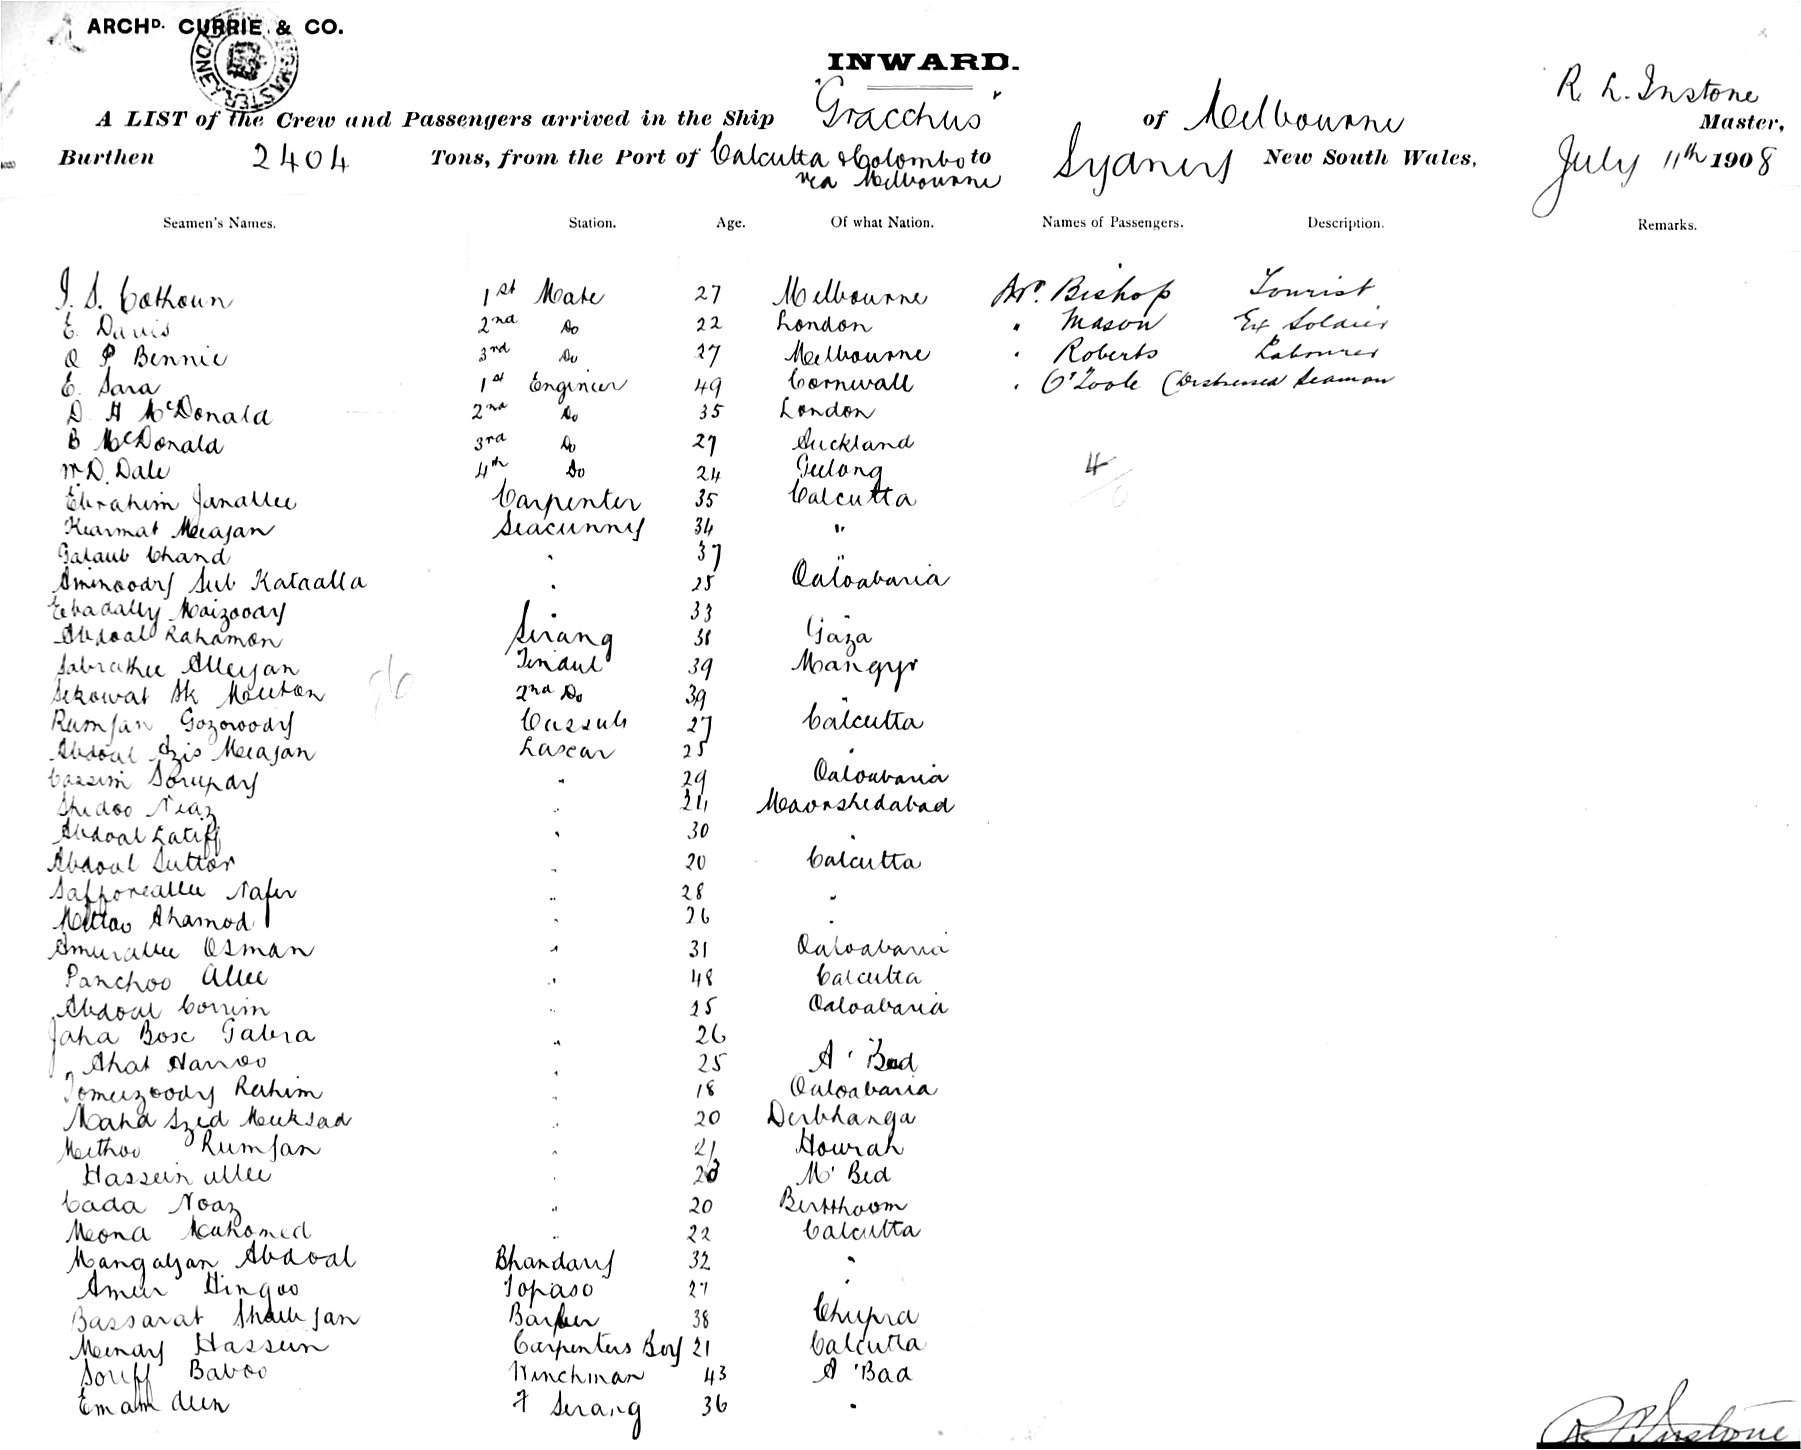 ARCHD. CURRIE & CO.
INWARD.
R. L. Instone
A LIST of the Crew and Passengers arrived in the Ship "Gracchus" of Melbourne Master,
Burthen 2404 Tons, from the Port of Calcutta & Colombo to Sydney New South Wales, July 11th 1908
via Melbourne
Seamen's Names. Station. Age. Of what Nation. Names of Passengers. Description. Remarks.
J. S. Colhoun 1st Mate 27 Melbourne Mr. Bishop Tourist
E. Davis 2nd Do 22 London " Mason Ex Soldier
P Bennie 3rd Do 27 Melbourne " Roberts Labourer
E. Sara 1st Engineer 49 Cornwall " O'Toole (Distressed Seaman
D. H McDonald 2nd Do 35 London
B McDonald 3rd Do 27 Auckland
W. D. Dale 4th Do 24 Geelong 4
Ebrahim Janallee Carpenter 35 Calcutta
Kurmat Meajan Seacunny 34 "
Galaub Chand " 37 "
Aminoody Sub Kataalla " 25 Oaloabaria
Ebadally Moizoody " 33 "
Abdoal Rahamon Serang 38 Gaza
Sabrathee Alleyjan Tindul 39 Mangyr
Sekowat Sk Meeton 2nd Do 39 "
Rumjan Gozowoody Cussub 27 Calcutta
Abdoal Azis Meajan Lascar 25 "
Cassim Sorupdy " 29 Oaloabaria
Shedoo Neaz " 24 Moorshedabad
Abdoal Latiff " 30 "
Abdoal Suttar " 20 Calcutta
Safforeallee Nafer " 28 "
Mettoo Ahamod " 26 "
Amurallee Osman " 31 Oaloabaria
Panchoo Allee " 48 Calcutta
Abdoal Corrim " 25 Oaloabaria
Jaha Bose Gabra " 26 "
" Ahat Harroo " 25 A' Bad
Tomeezoody Rahim " 18 Oaloabaria
Mahd Szed Meeksad " 20 Derbhanga
Methoo Rumjan " 21 Howrah
Hassein allee " M' Bed
Cada Noaz " 20 Birbhoom
Meona Mahomed " 22 Calcutta
Mangaljan Abdoal Bhandary 32 "
Ameer Hingoo Topaso 27 "
Bassarat Shaikjan Barber 38 Chupra
Meendy Hassein Carpenters Boy 21 Calcutta
Soriff Baboo Winchman 43 A' Bad
Emam deen F Serang 36 "
R. L. Instone